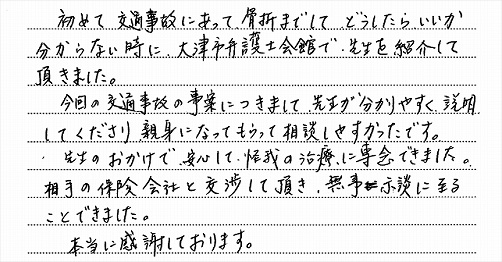 初めて交通事故にあって、骨折までして どうしたらいいか
分からない時に、大津市弁護士会館で、先生を紹介して
頂きました。
今回の交通事故の事案につきまして、先生が分かりやすく、説明
してくださり 親身になってもらって相談しやすかったです。
先生のおかけで、安心して、怪我の治療に専念できました。
相手の保険会社と交渉して頂き、無事示談に至る
ことできました。
本当に感謝しております。